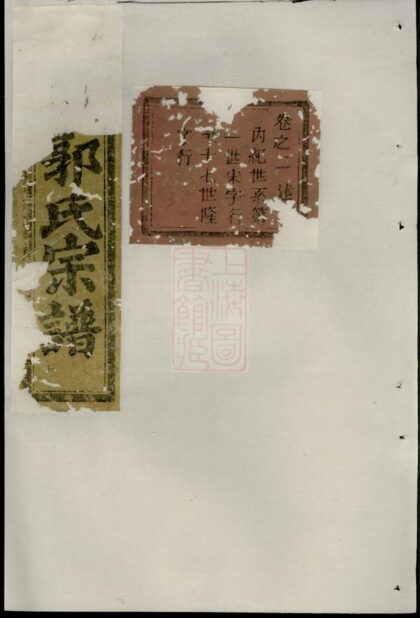 郭氏宗譜
卷之一 述
內紀世系第
一世宋字行
至十七世隆
字行
上海圖
書館藏